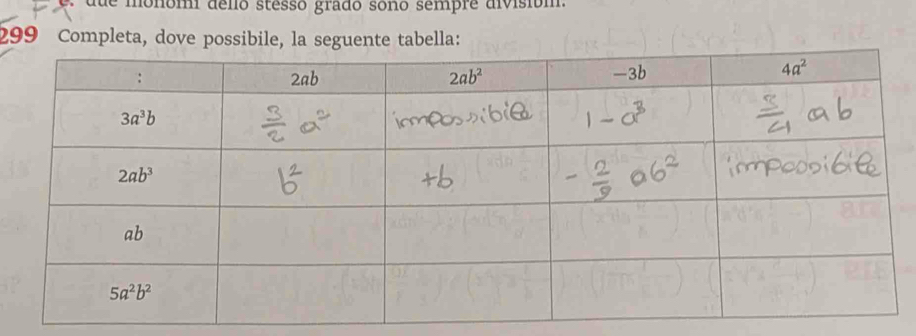 due monomi dello stesso grado sono sempre divisibili.
299 Completa, dove possibile, la seguente tabella:
: 2ab 2ab² −3b 4a²
3a³b 3/2 a² impossibile 1-a³ 3/4 ab
2ab³ b² +b -2/3 ab² impossibile
ab
5a²b²